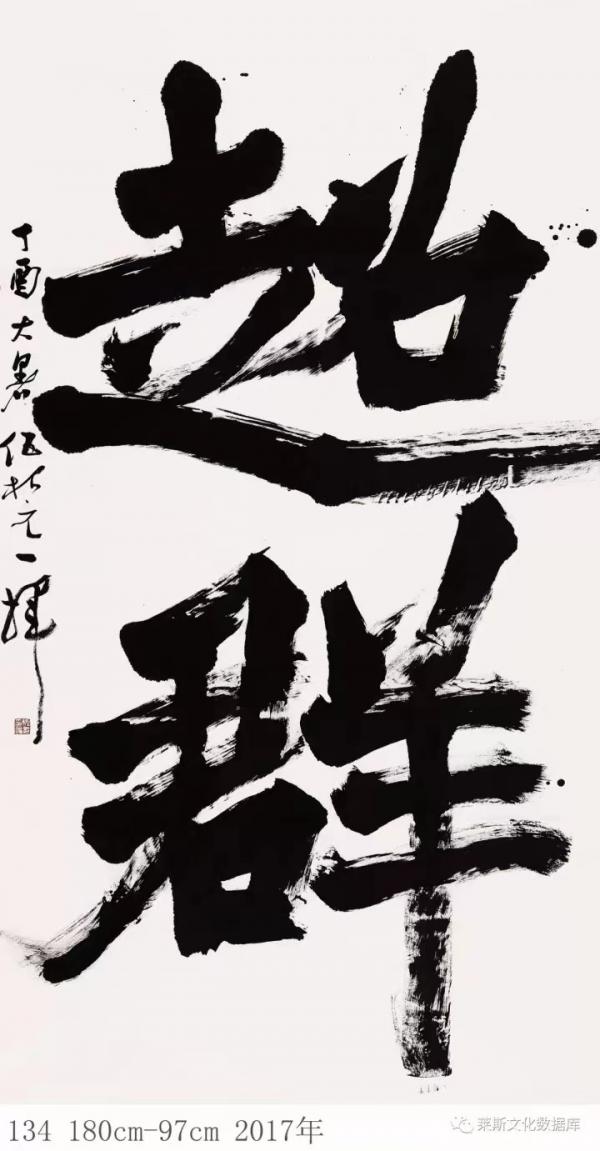 超
群
丁酉大暑伍柱元一辉
134 180cm-97cm 2017年
莱斯文化数据库